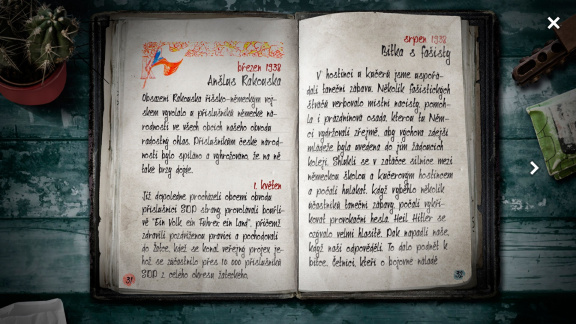 březen 1938
Anšlus Rakouska
Obsazení Rakouska říšsko-německým voj-
skem vyvolalo u příslušníků německé ná-
rodnosti ve všech obcích našeho obvodu
radostný ohlas. Příslušníkům české národ-
nosti bylo spíláno a vyhrožováno, že na ně
také brzy dojde.
1. květen
Již dopoledne procházeli obcemi obvodu
příslušníci SDP strany provolávali bouřli-
vě "Ein Volk ein Führer ein Land", přičemž
zdravili pozdviženou pravicí a pochodovali
do Žatce, kdež se konal veřejný projev je-
hož se súčastnilo přes 10 000 příslušníků
SDP z celého okresu žateckého.
37
srpen 1938
Bitka s fašisty
V hostinci u Kučerů jsme uspořá-
dali taneční zábavu. Několik fašistických
štváčů verbovalo místní nacisty, pomoh-
la i prázdninová osada, kterou tu Něm-
ci vydržovali zřejmě, aby výchova zdejší
mládeže byla uvedena do jim žádoucích
kolejí. Shlukli se v zatáčce silnice mezi
německou školou a Kučerovým hostincem
a počali hulákat. Když vyběhlo několik
účastníků taneční zábavy, počali vykři-
kovat provokační hesla. Heil Hitler se
ozývalo velmi hlasitě. Pak napadli naše,
když naši odpověděli. To dalo podnět k
bitce. Četníci, kteří o bojovné náladě